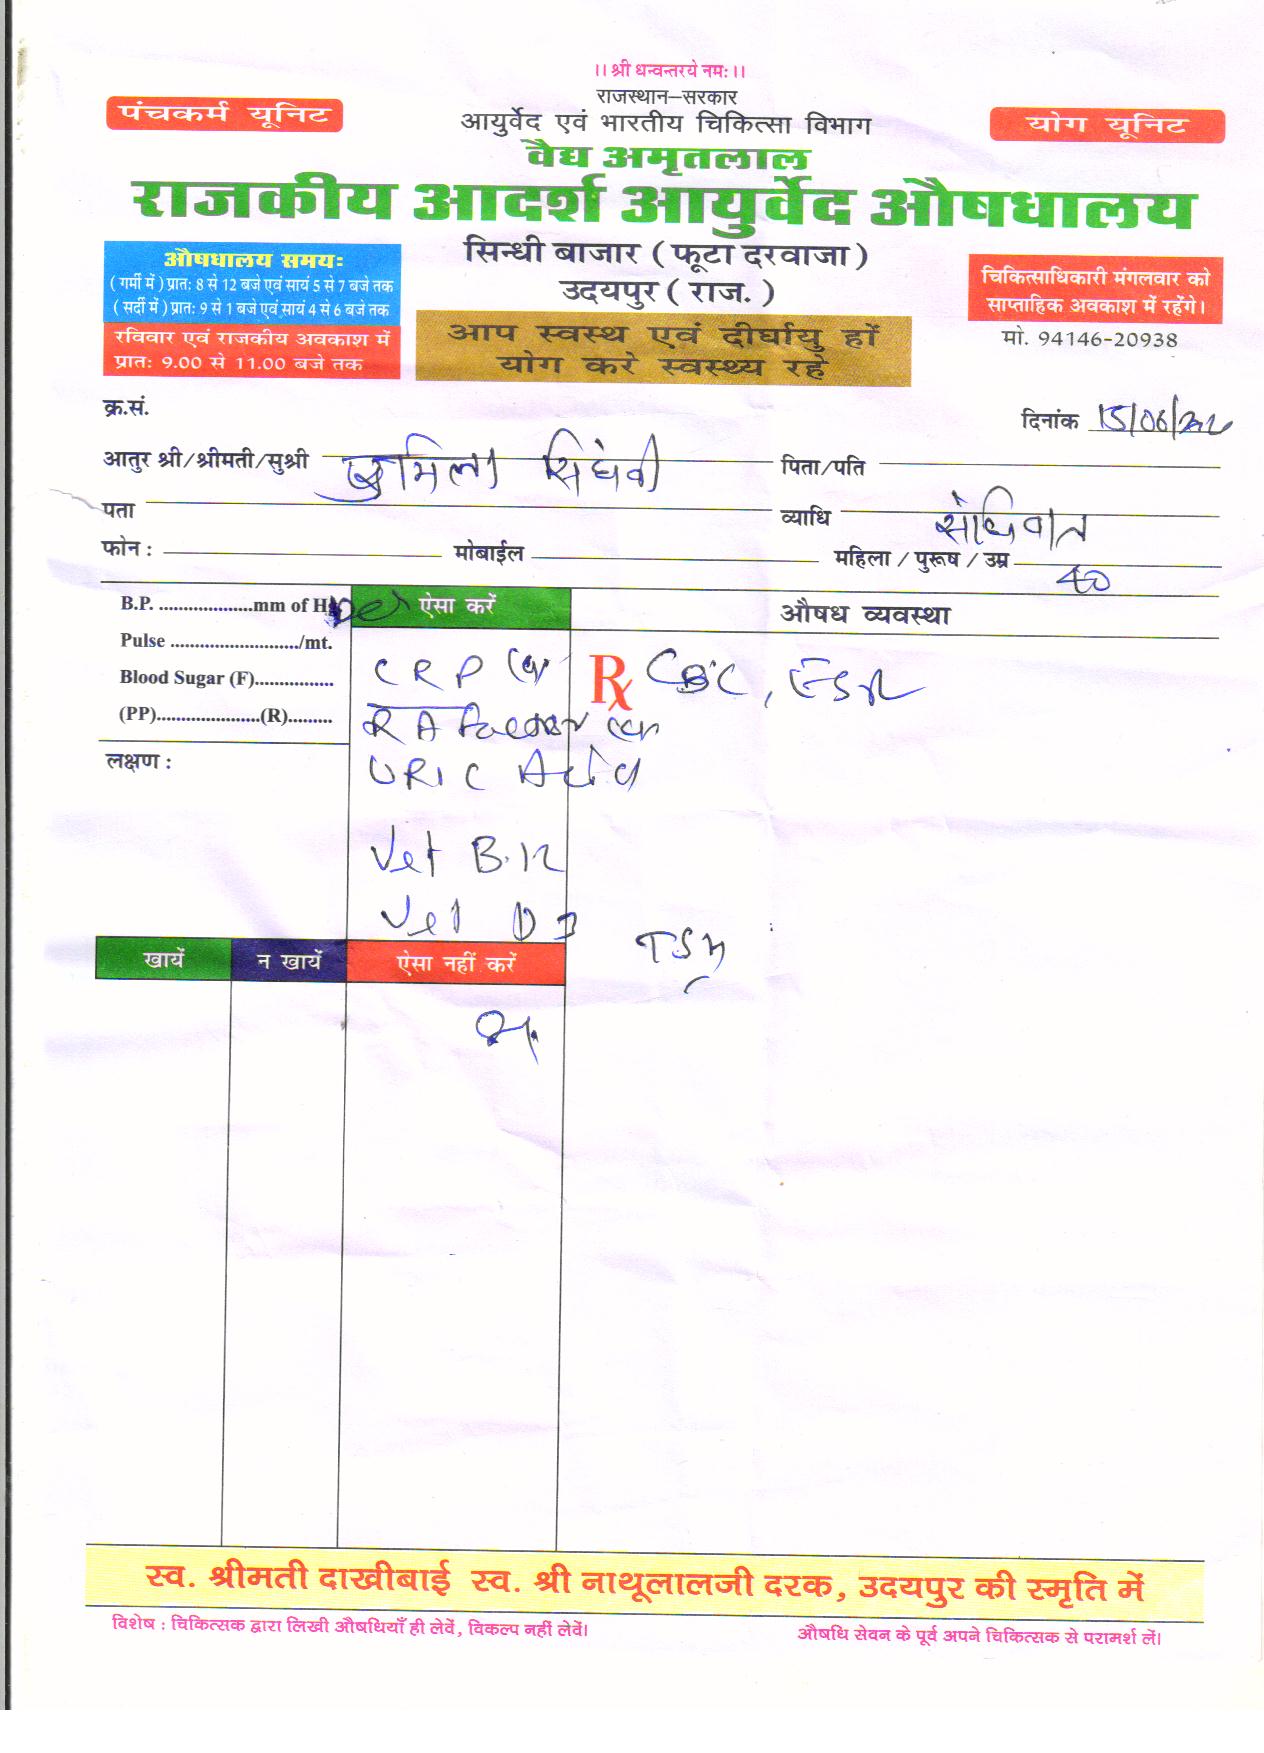 ।। श्री धन्वन्तरये नमः ।।
राजस्थान–सरकार
पंचकर्म यूनिट
आयुर्वेद एवं भारतीय चिकित्सा विभाग
योग यूनिट
वैद्य अमृतलाल
राजकीय आदर्श आयुर्वेद औषधालय
सिन्धी बाजार ( फूटा दरवाजा )
उदयपुर ( राज. )
औषधालय समयः
( गर्मी में ) प्रातः 8 से 12 बजे एवं सायं 5 से 7 बजे तक
( सर्दी में ) प्रातः 9 से 1 बजे एवं सायं 4 से 6 बजे तक
रविवार एवं राजकीय अवकाश में
प्रातः 9.00 से 11.00 बजे तक
आप स्वस्थ एवं दीर्घायु हों
योग करे स्वस्थ्य रहे
चिकित्साधिकारी मंगलवार को
साप्ताहिक अवकाश में रहेंगे।
मो. 94146-20938
क्र.सं.
दिनांक 15/06/
आतुर श्री/श्रीमती/सुश्री सिंघवी
पिता/पति
पता
व्याधि संधिवात
फोन :
मोबाईल
महिला / पुरूष / उम्र 40
B.P. ...................mm of
ऐसा करें
औषध व्यवस्था
Pulse ........................../mt.
Blood Sugar (F)................
(PP).....................(R).........
लक्षण :
CRP
Rx CBC, ESR
RA Factor
URIC Acid
Vit B.12
Vit D3
TSH
खायें
न खायें
ऐसा नहीं करें
स्व. श्रीमती दाखीबाई स्व. श्री नाथूलालजी दरक, उदयपुर की स्मृति में
विशेष : चिकित्सक द्वारा लिखी औषधियाँ ही लेवें, विकल्प नहीं लेवें।
औषधि सेवन के पूर्व अपने चिकित्सक से परामर्श लें।